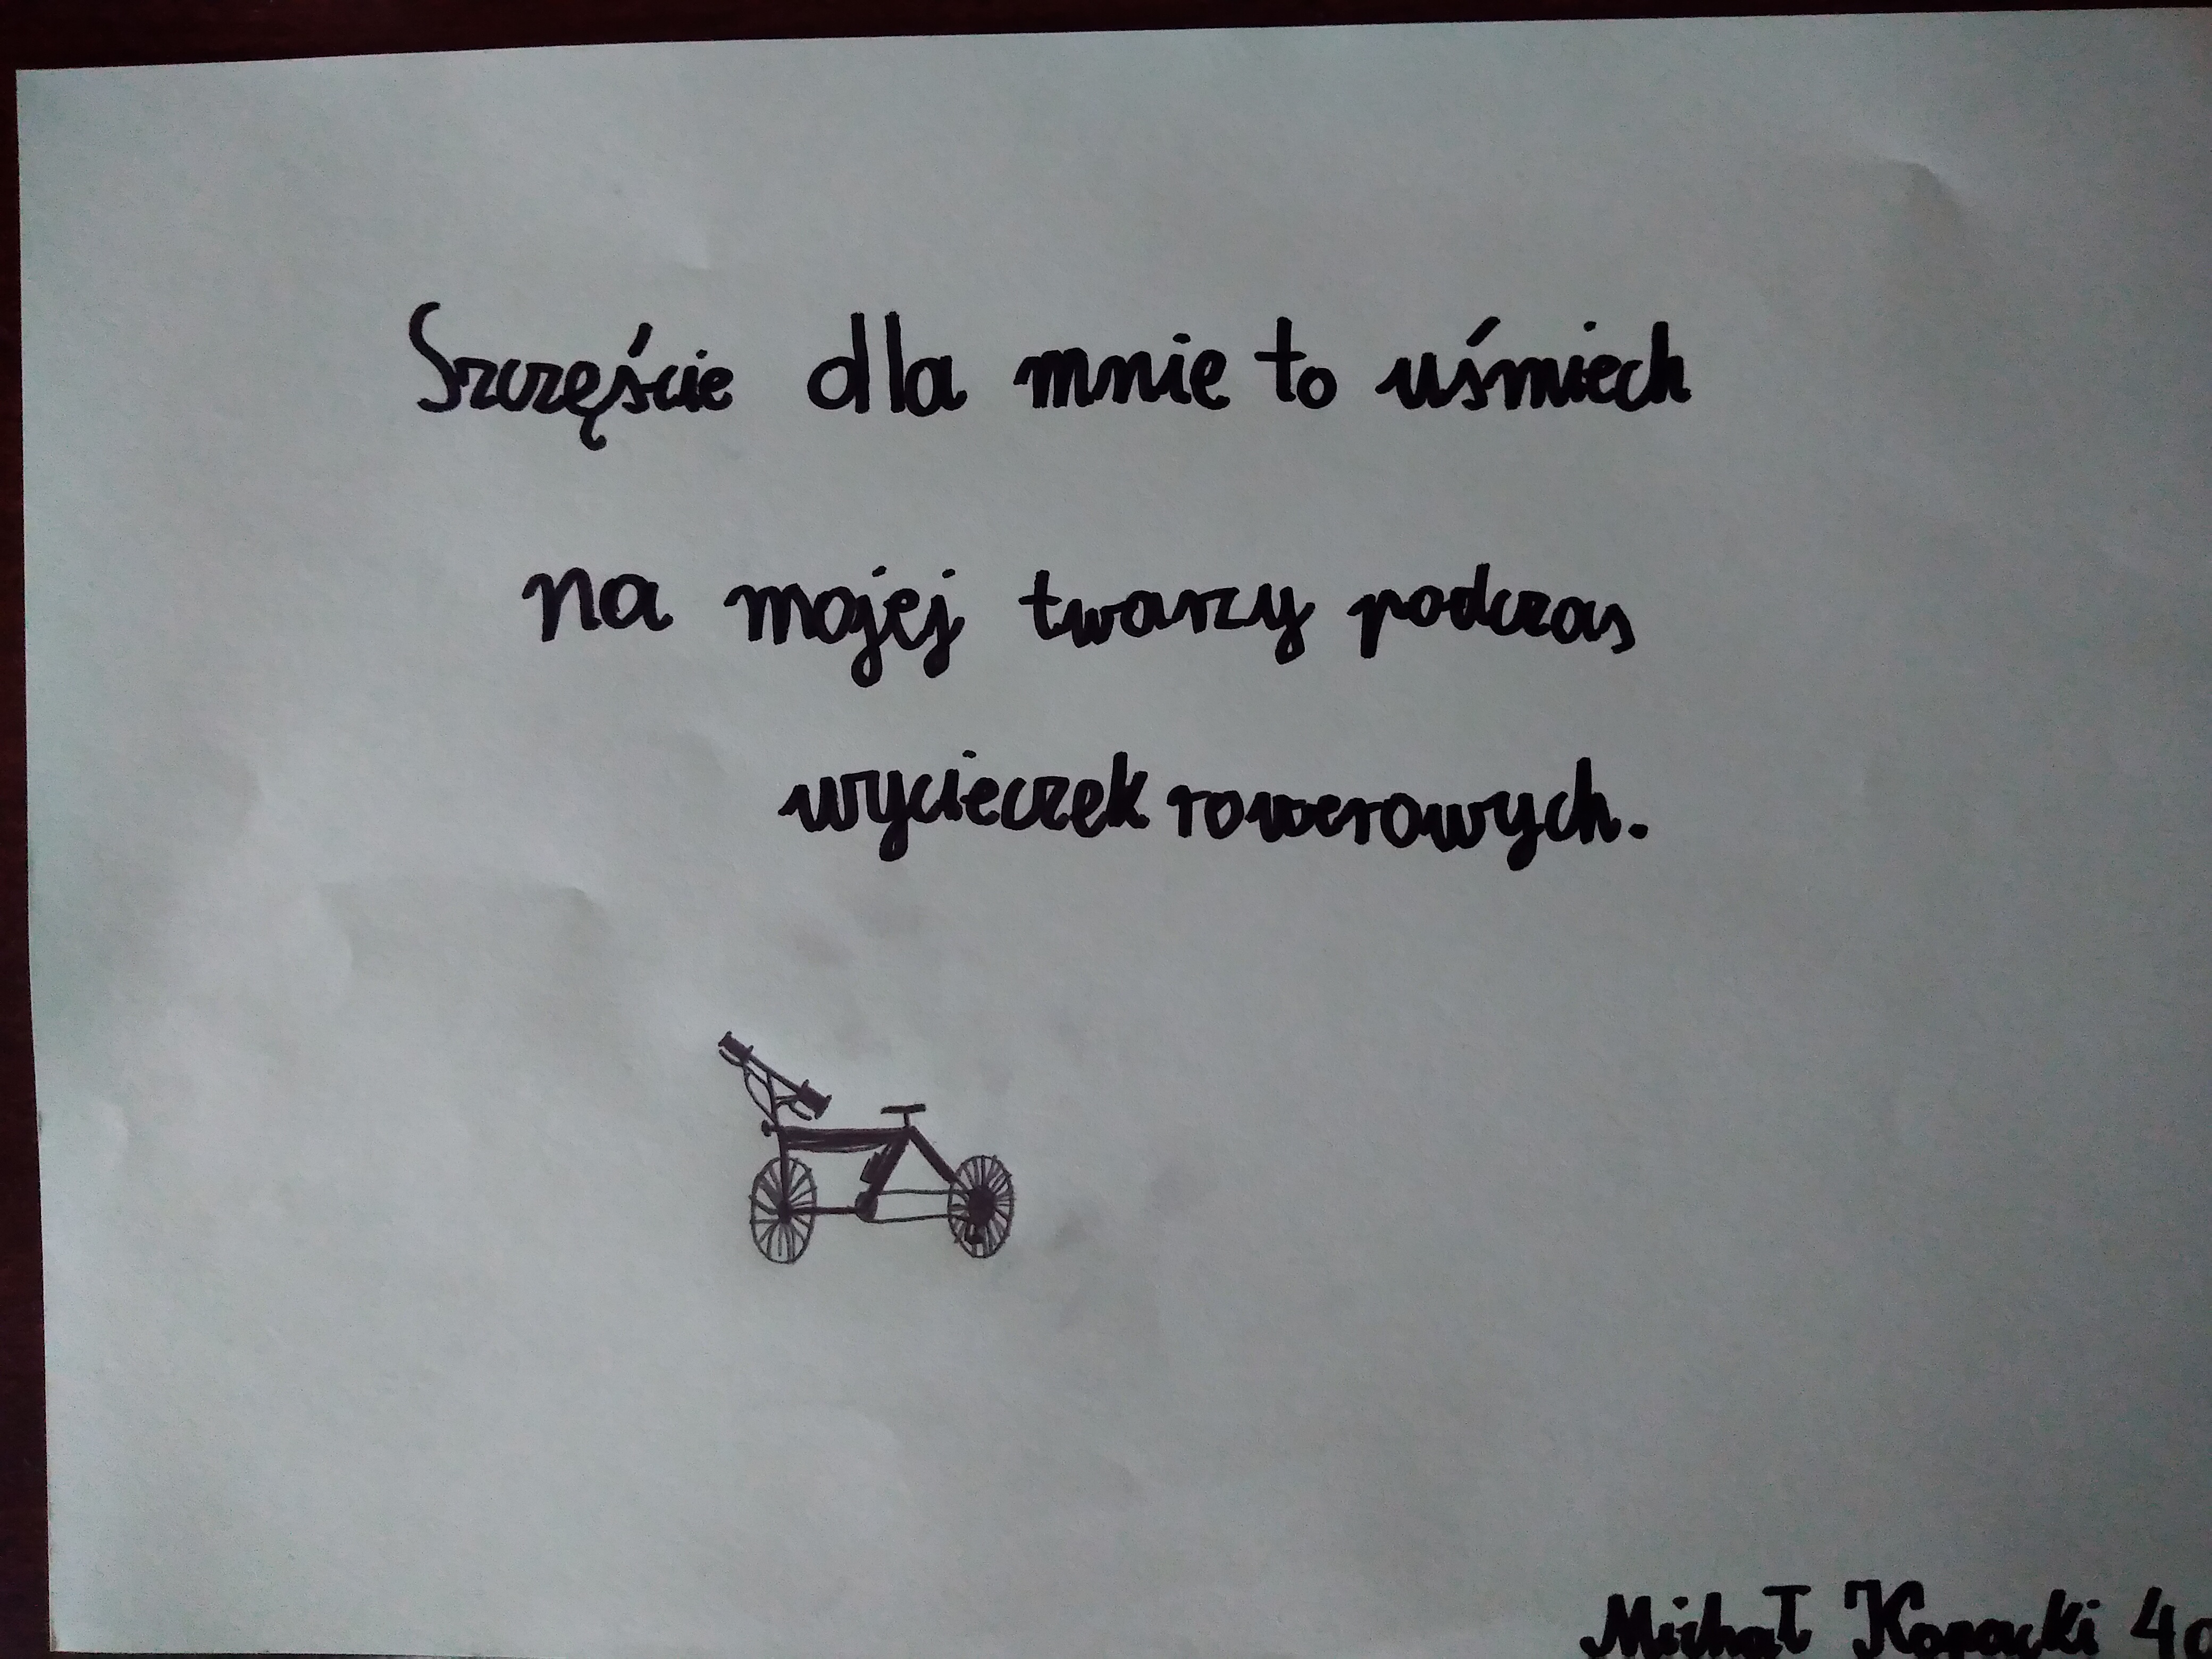 Szczęście dla mnie to uśmiech
na mojej twarzy podczas
wycieczek rowerowych.
Michał